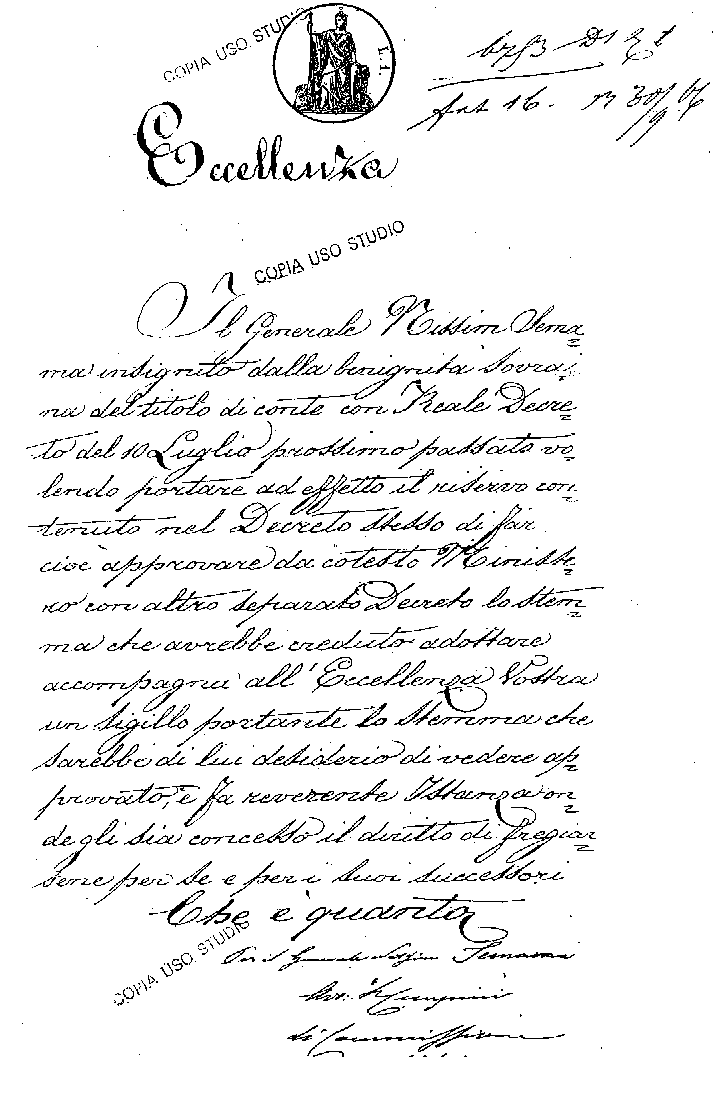 COPIA USO STUDIO
L. 1.
Art 16.
Eccellenza
COPIA USO STUDIO
Il Generale Nissim Sema=
ma insignito dalla benignità Sovra=
na del titolo di conte con Reale Decre=
to del 10 Luglio prossimo passato vo=
lendo portare ad effetto il riservo con=
tenuto nel Decreto stesso di far
cioè approvare da cotesto Ministe=
ro con altro separato Decreto lo stem=
ma che avrebbe creduto adottare
accompagna all' Eccellenza Vostra
un sigillo portante lo stemma che
sarebbe di lui desiderio di vedere ap=
provato, e fa reverente Istanza on=
de gli sia concesso il diritto di fregiar=
sene per se e per i suoi successori
Che è quanto
COPIA USO STUDIO
Per il Generale Semama
Avv.
di Commissione